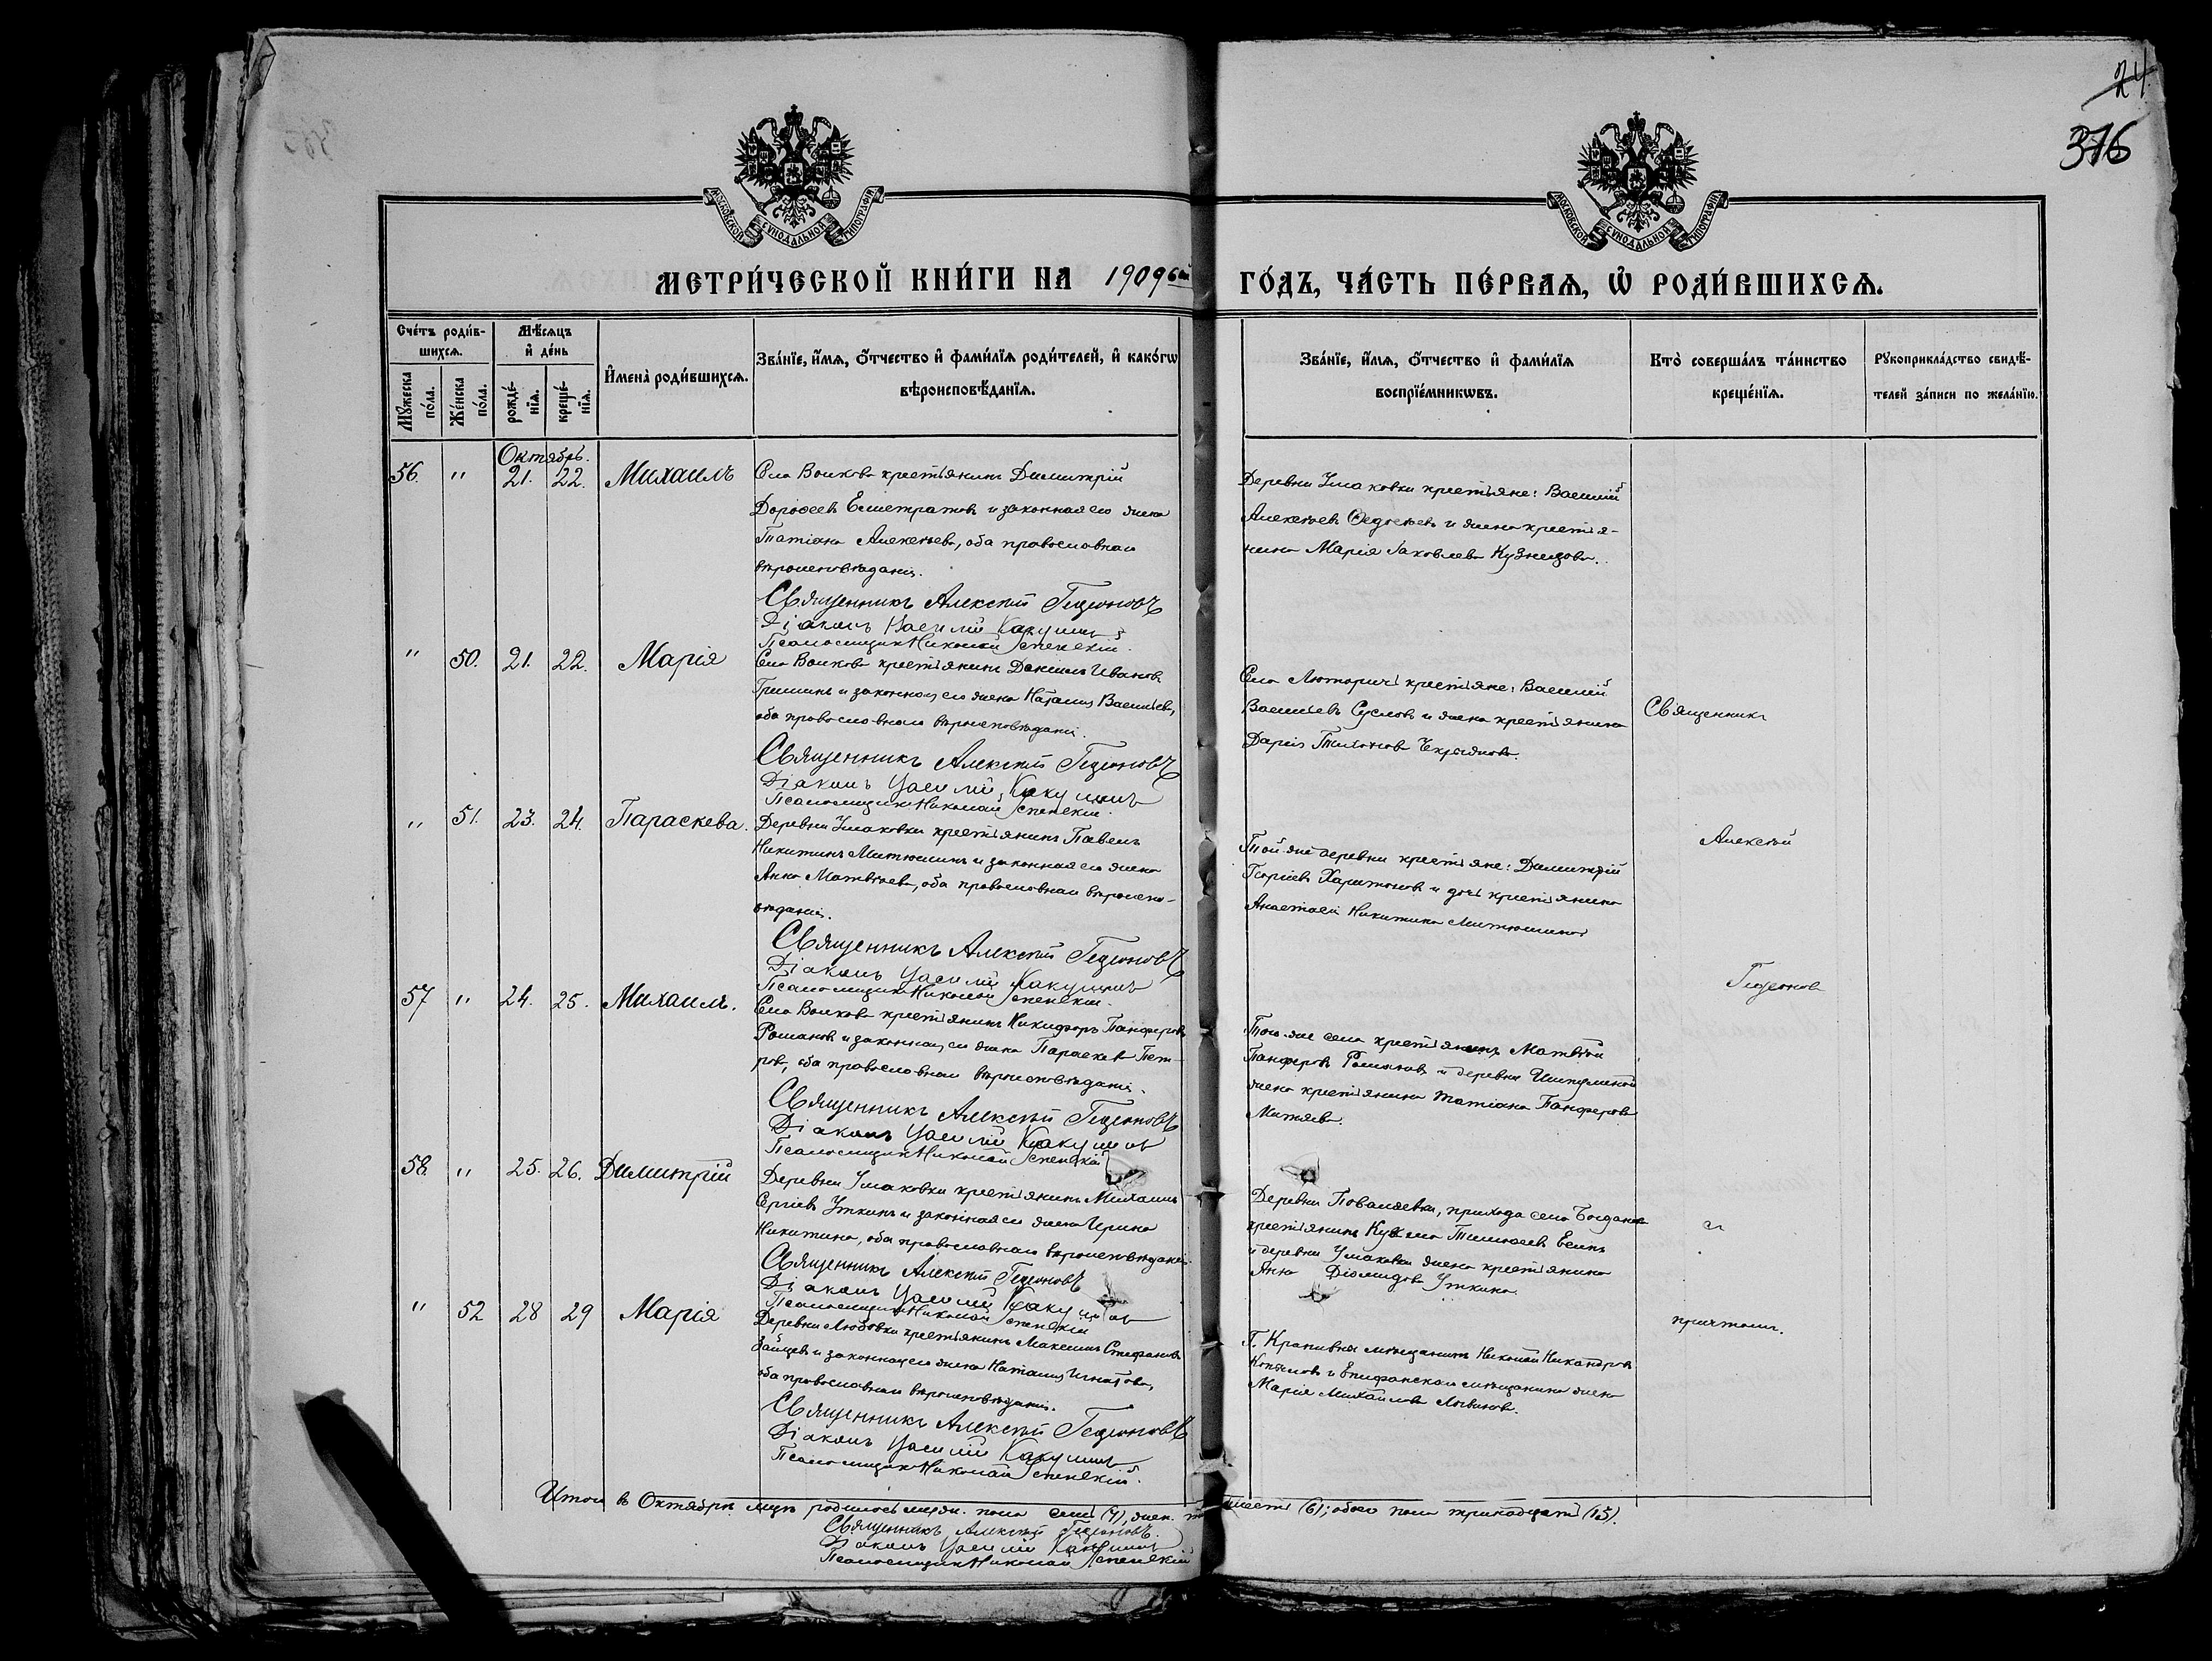 24
376
МОСКОВСКОЙ СѴНОДАЛЬНОЙ ТИПОГРАФІИ
МОСКОВСКОЙ СѴНОДАЛЬНОЙ ТИПОГРАФІИ
МЕТРИ́ЧЕСКОЙ КНИ́ГИ НА 1909 ГО́ДЪ, ЧА́СТЬ ПЕ́РВАѦ, Ѡ РОДИ́ВШИХСѦ.
Сче́тъ роди́в-
шихсѧ.
Мѣ́сѧцъ
и҆ де́нь
Мꙋжеска
по́ла.
Же́нска
по́ла.
рожде́-
нїѧ.
креще́-
нїѧ.
И҆мена̀ роди́вшихсѧ.
Зва́нїе, и҆́мѧ, ѻ҆́тчество и҆ фами́лїѧ роди́телей, и҆ како́гѡ
вѣроисповѣ́данїѧ.
Зва́нїе, и҆́мѧ, ѻ҆́тчество и҆ фами́лїѧ
воспрїе́мникѡвъ.
Кто̀ соверша́лъ та́инство
креще́нїѧ.
Рꙋкоприкла́дство свидѣ́-
телей за́писи по жела́нїю.
Октябрь.
56. " 21. 22. Михаилъ
Села Волкова крестьянинъ Димитрій
Дороѳеевъ Емистратовъ и законная его жена
Татіана Алексѣева, оба православнаго
вѣроисповѣданія.
Священникъ Алексѣй Гедеоновъ
Діаконъ Василій Какушинъ
Псаломщикъ Николай Успенскій.
Деревни Ушаковки крестьяне: Василій
Алексѣевъ Ѳедосѣевъ и жена крестья-
нина Марія Іаковлева Кузнецова.
" 50. 21. 22. Марія
Села Волкова крестьянинъ Даніилъ Ивановъ
Гришинъ и законная его жена Наталія Васильева,
оба православнаго вѣроисповѣданія.
Священникъ Алексѣй Гедеоновъ
Діаконъ Василій Какушинъ
Псаломщикъ Николай Успенскій.
Села Люторичь крестьяне: Василій
Васильевъ Сусловъ и жена крестьянина
Дарія Тихонова
Священникъ
" 51. 23. 24. Параскева.
Деревни Ушаковки крестьянинъ Павелъ
Никитинъ Митюшинъ и законная его жена
Анна Матвѣева, оба православнаго вѣроиспо-
вѣданія.
Священникъ Алексѣй Гедеоновъ
Діаконъ Василій Какушинъ
Псаломщикъ Николай Успенскій.
Той же деревни крестьяне: Димитрій
Георгіевъ Харитоновъ и дочь крестьянина
Анастасія Никитина Митюшина
Алексѣй
57 " 24. 25. Михаилъ.
Села Волкова крестьянинъ Никифоръ Панферовъ
Романовъ и законная его жена Параскева Пет-
ров, оба православнаго вѣроисповѣданія.
Священникъ Алексѣй Гедеоновъ
Діаконъ Василій Какушинъ
Псаломщикъ Николай Успенскій
Того же села крестьянинъ Матвѣй
Панферовъ Романовъ и деревни
жена крестьянина Татіана Панферова
Митяева.
Гедеоновъ
58. " 25. 26. Димитрій
Деревни Ушаковки крестьянинъ Михаилъ
Сергіевъ Уткинъ и законная его жена Ирина
Никитина, оба православнаго вѣроисповѣданія.
Священникъ Алексѣй Гедеоновъ
Діаконъ Василій Какушинъ
Псаломщикъ Николай Успенскій
Деревни Поваляевки, прихода села Богданова
крестьянинъ Кузьма Тимоѳеевъ Есинъ
и деревни Ушаковки жена крестьянина
Анна Діомидова Уткина.
съ
" 52 28 29 Марія
Деревни Любовки крестьянинъ Максимъ Стефановъ
Зайцевъ и законная его жена Наталія Игнатова,
оба православнаго вѣроисповѣданія.
Священникъ Алексѣй Гедеоновъ
Діаконъ Василій Какушинъ
Псаломщикъ Николай Успенскій.
Г. Крапивны мѣщанинъ Николай Никандровъ
Копыловъ и Епифанскаго мѣщанина жена
Марія Михайлова
причтомъ.
Итого въ Октябрѣ мцѣ родилось муж. пола семь (7), жен. шесть (6); обоего пола тринадцать (13).
Священникъ Алексѣй Гедеоновъ.
Діаконъ Василій Какушинъ
Псаломщикъ Николай Успенскій